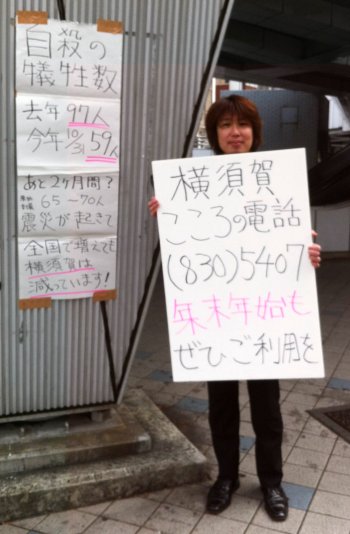 自殺の
犠牲数
去年 97人
今年10/31 59人
あと2ヶ月間?
65〜70人
震災が起きて
全国で増えても
横須賀は
減っています!
横須賀
こころの電話
(830)5407
年末年始も
ぜひご利用を